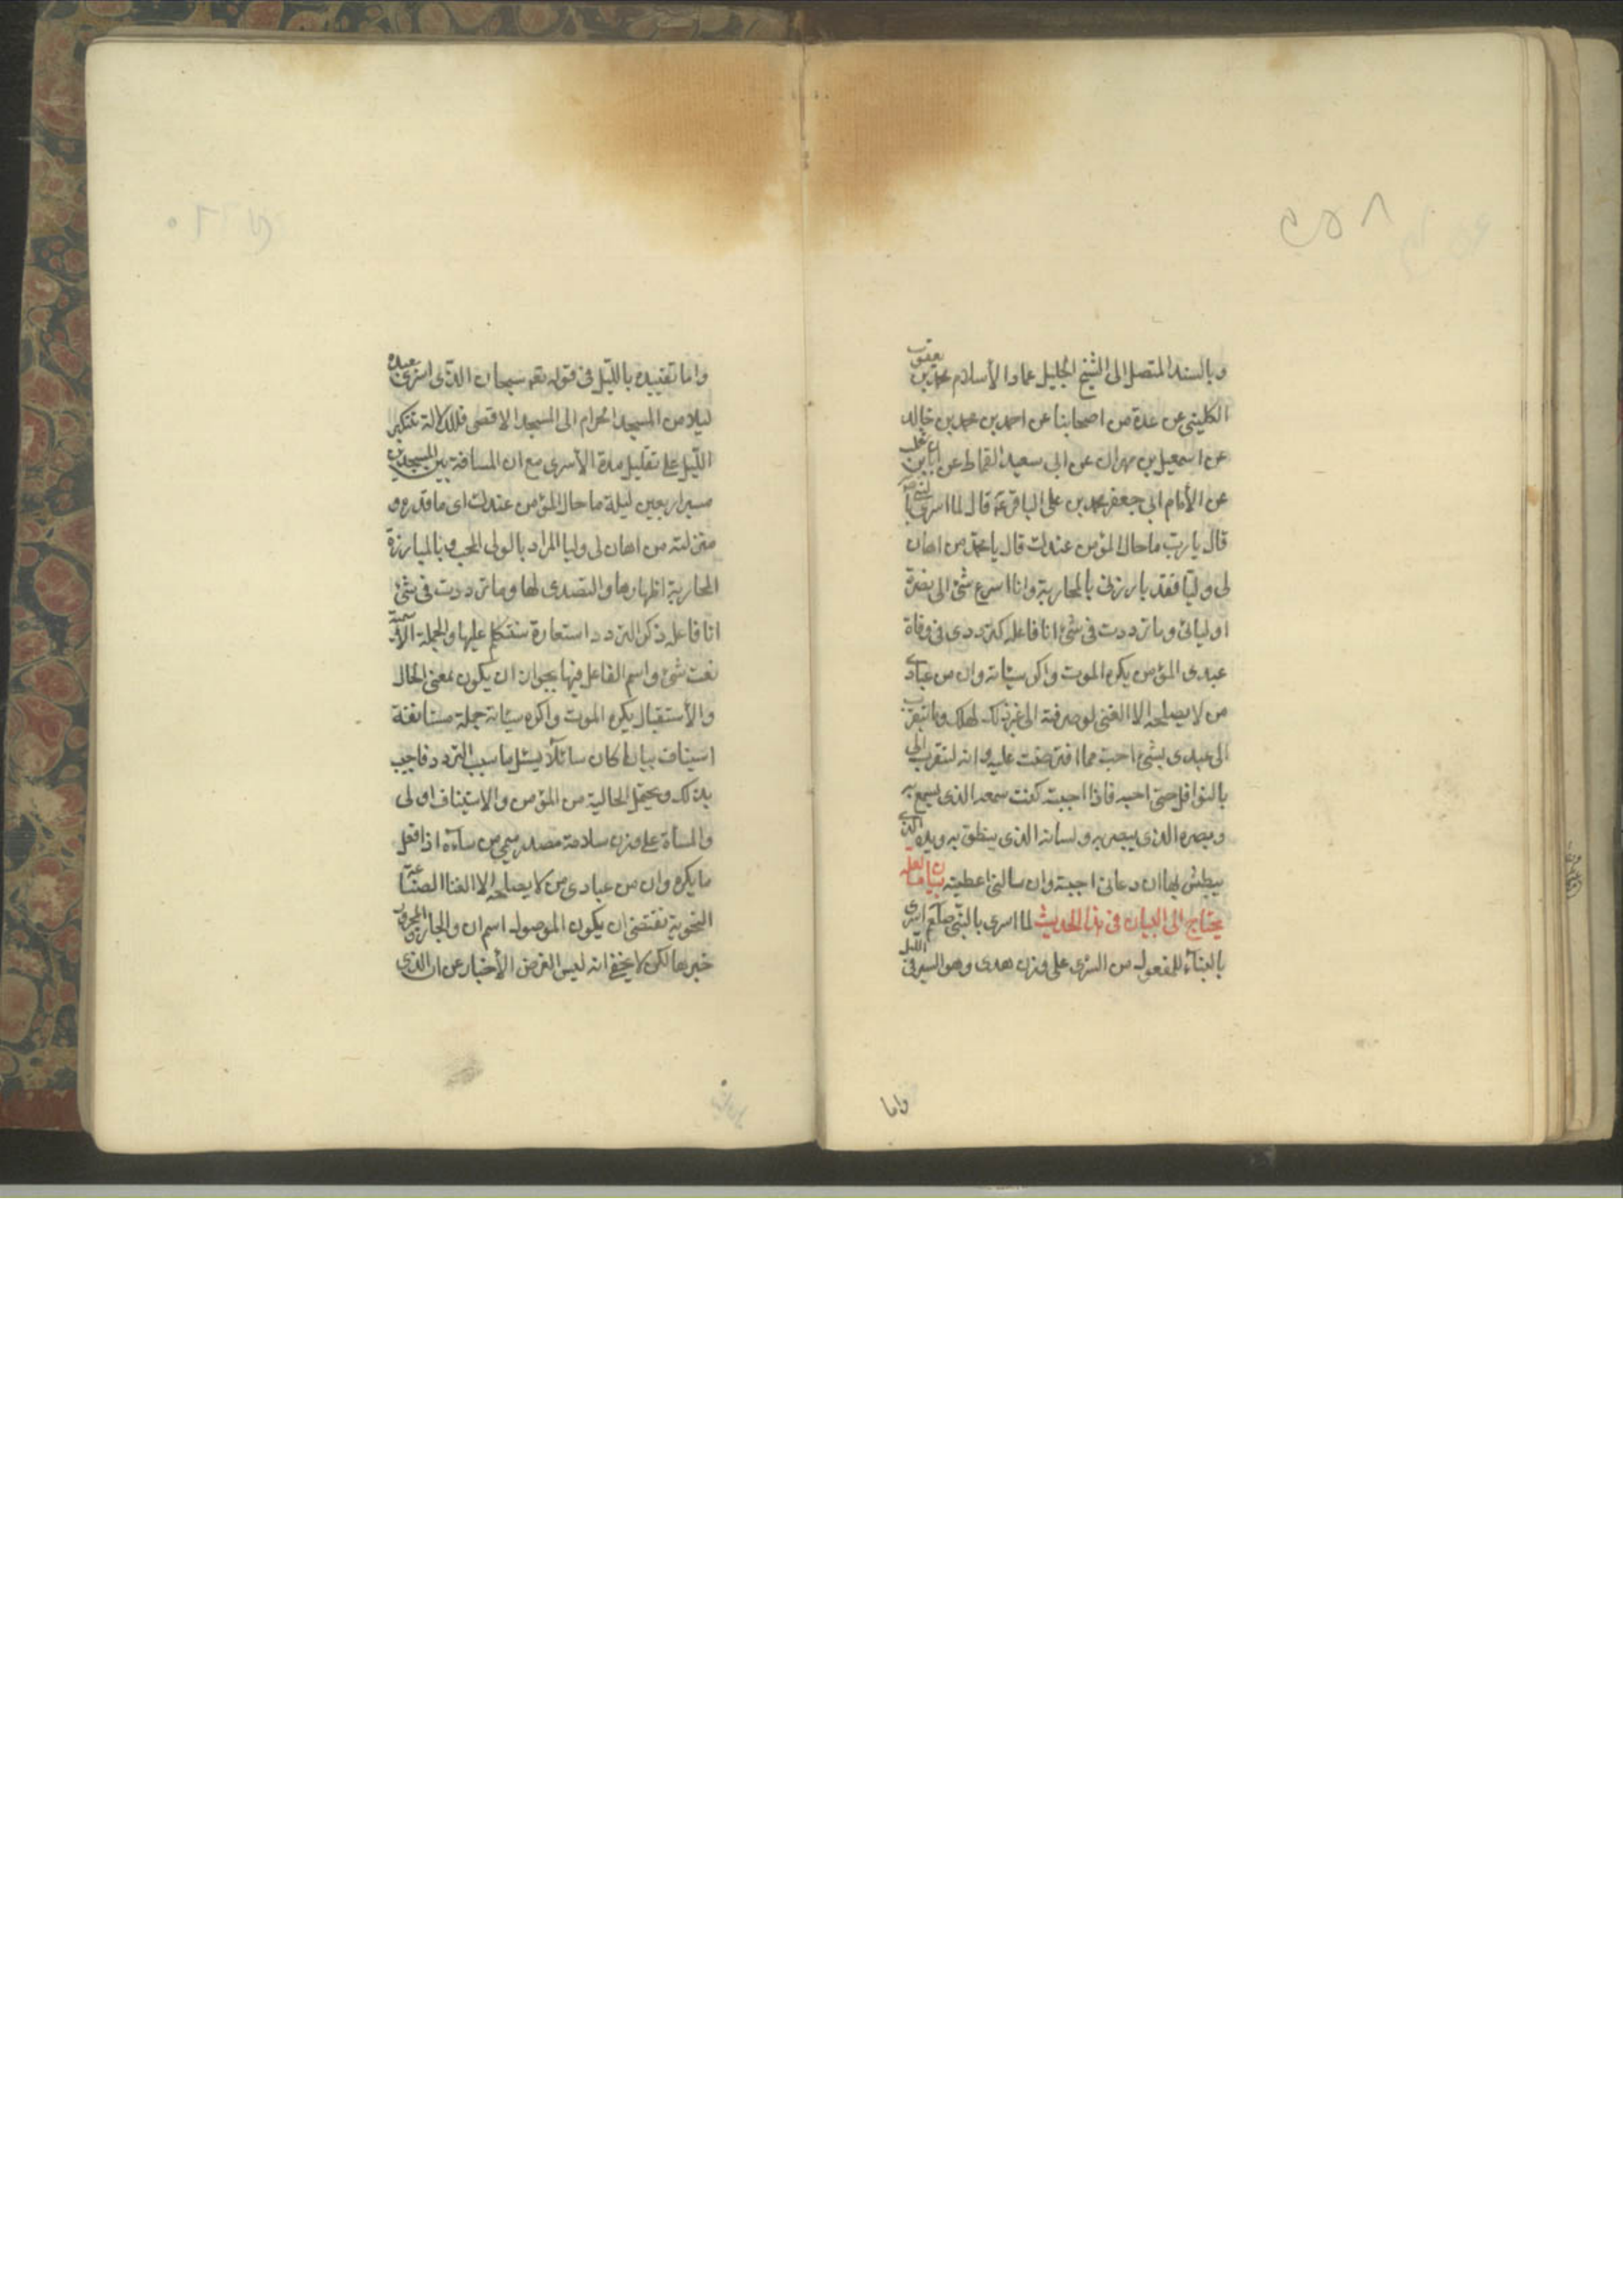 وبالسند المتصل الى الشيخ الجليل عماد الأسلام محمد بن يعقوب
الكلينى عن عدة من اصحابنا عن احمد بن محمد بن خالد
عن اسمعيل بن مهران عن ابى سعيد القماط عن ابان بن تغلب
عن الأمام ابى جعفر محمد بن على الباقر ع قال لما اسرى بالنبى ص
قال يا رب ما حال المؤمن عندك قال يا محمد من اهان
لى وليا فقد بارزنى بالمحاربة وانا اسرع شئ الى نصرة
اوليائى وما ترددت فى شئ انا فاعله كترددى فى وفاة
عبدى المؤمن يكره الموت واكره مسائته وان من عبادى
من لا يصلحه الا الغنى لو صرفته الى غير ذلك لهلك وما يتقرب
الى عبدى بشئ احب مما افترضت عليه و انه ليتقرب الى
بالنوافل حتى احبه فاذا احببته كنت سمعه الذى يسمع به
وبصره الذى يبصر به ولسانه الذى ينطق به ويده التى
يبطش بها ان دعانى اجبته وان سالنى اعطيته بيان ما لعله
يحتاج الى البيان فى هذا الحديث لما اسرى بالنبى صلعم اسرى
بالبناء للمفعول من السرى على وزن هدى وهو السير فى الليل
واما
واما تقييده بالليل فى قوله تعه سبحان الذى اسرى بعبده
ليلا من المسجد الحرام الى المسجد الاقصى فللدلالة بتنكير
الليل على تقليل مدة الأسرى مع ان المسافة بين المسجدين
مسير اربعين ليلة ما حال المؤمن عندك اى ما قدره و
منزلته من اهان لى وليا المراد بالولى المحب و بالمبارزة
المحاربة اظهارها والتصدى لها وما ترددت فى شئ
انا فاعله ذكر التردد استعارة سنتكلم عليها والجملة الأسمية
نعت شئ واسم الفاعل فيها يجوز ان يكون بمعنى الحال
والأستقبال يكره الموت واكره مسائته جملة مستانفة
استيناف بيانى كان سائلا يسئل ما سبب التردد فاجيب
بذلك ويحتمل الحالية من المؤمن والاستيناف اولى
والمسأة على وزن سلامة مصدر ميمى من ساءه اذا فعل
ما يكره وان من عبادى من لا يصلحه الا الغنا الصناعة
النحوية تقتضى ان يكون الموصول اسم ان والجار والمجرور
خبرها لكن لا يخفى انه ليس الغرض الأخبار عن ان الذى